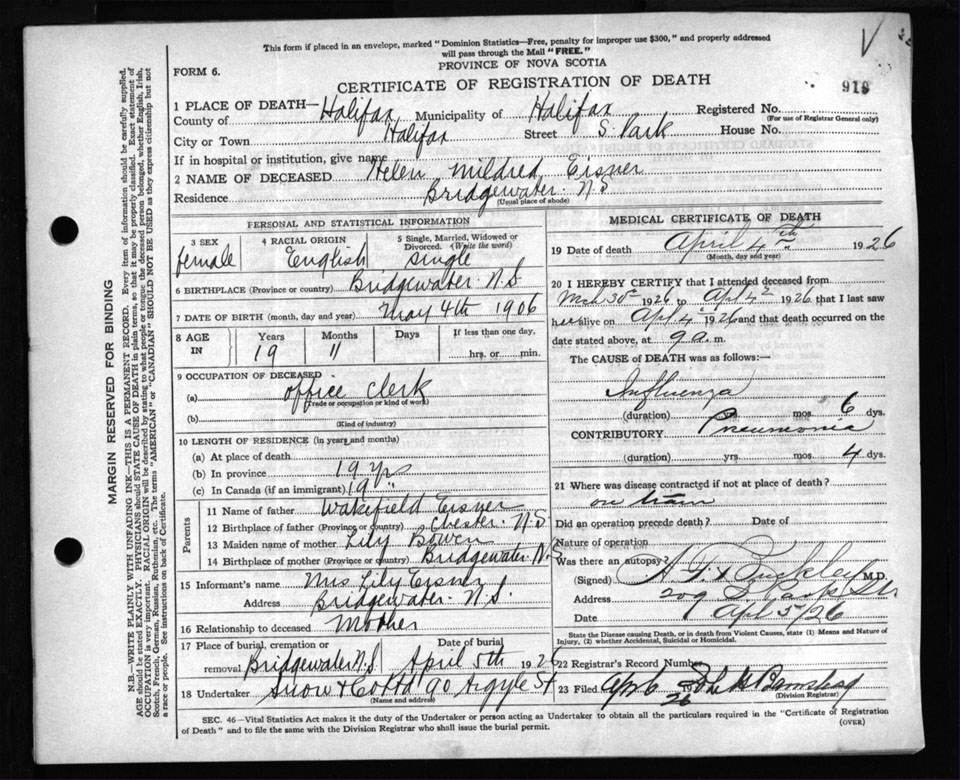 This form if placed in an envelope, marked "Dominion Statistics—Free, penalty for improper use $300," and properly addressed
will pass through the Mail "FREE."
PROVINCE OF NOVA SCOTIA
FORM 6.
CERTIFICATE OF REGISTRATION OF DEATH
918
1 PLACE OF DEATH—
County of Halifax Municipality of Halifax Registered No.
(For use of Registrar General only)
City or Town Halifax Street S. Park House No.
If in hospital or institution, give name
2 NAME OF DECEASED Helen Mildred Eisner
Residence Bridgewater N.S
(Usual place of abode)
PERSONAL AND STATISTICAL INFORMATION
3 SEX female
4 RACIAL ORIGIN English
5 Single, Married, Widowed or Divorced. (Write the word) single
6 BIRTHPLACE (Province or country) Bridgewater N.S
7 DATE OF BIRTH (month, day and year) May 4th 1906
8 AGE IN Years Months Days If less than one day,
19 11 hrs. or min.
9 OCCUPATION OF DECEASED
(a) office clerk
(Trade or occupation or kind of work)
(b)
(Kind of industry)
10 LENGTH OF RESIDENCE (in years and months)
(a) At place of death
(b) In province 19 yrs
(c) In Canada (if an immigrant) 19 "
Parents
11 Name of father Wakefield Eisner
12 Birthplace of father (Province or country) Chester N.S
13 Maiden name of mother Lily Bowen
14 Birthplace of mother (Province or country) Bridgewater N.S
15 Informant's name Mrs Lily Eisner
Address Bridgewater N.S.
16 Relationship to deceased Mother
17 Place of burial, cremation or removal Bridgewater N.S. Date of burial April 5th 1926
18 Undertaker Snow & Co Ltd 90 Argyle St
(Name and address)
MEDICAL CERTIFICATE OF DEATH
19 Date of death April 4th 1926
(Month, day and year)
20 I HEREBY CERTIFY that I attended deceased from
Mch 30th 1926 to Apl 4th 1926 that I last saw
her alive on Apl 4th 1926 and that death occurred on the
date stated above, at 9 a. m.
The CAUSE of DEATH was as follows:
Influenza
(duration) mos. 6 dys.
CONTRIBUTORY Pneumonia
(duration) yrs. mos. 4 dys.
21 Where was disease contracted if not at place of death?
on train
Did an operation precede death? Date of
Nature of operation
Was there an autopsy?
(Signed) M.D.
Address 209 S. Park Str
Date Apl 5/26
State the Disease causing Death, or in death from Violent Causes, state (1) Means and Nature of
Injury, (2) whether Accidental, Suicidal or Homicidal.
22 Registrar's Record Number
23 Filed Apr 6 1926
(Division Registrar)
SEC. 46—Vital Statistics Act makes it the duty of the Undertaker or person acting as Undertaker to obtain all the particulars required in the "Certificate of Registration
of Death" and to file the same with the Division Registrar who shall issue the burial permit.
(OVER)
MARGIN RESERVED FOR BINDING
N.B.—WRITE PLAINLY WITH UNFADING INK—THIS IS A PERMANENT RECORD. Every item of information should be carefully supplied.
AGE should be stated EXACTLY. PHYSICIANS should STATE CAUSE OF DEATH in plain terms, so that it may be properly classified. Exact statement of
OCCUPATION is very important. RACIAL ORIGIN will be described by stating to what people or tongue the deceased person belonged, whether English, Irish,
Scotch, French, German, Russian, Ruthenian, etc. The terms "AMERICAN" or "CANADIAN" SHOULD NOT BE USED as they express citizenship but not
a race or people. See instructions on back of Certificate.